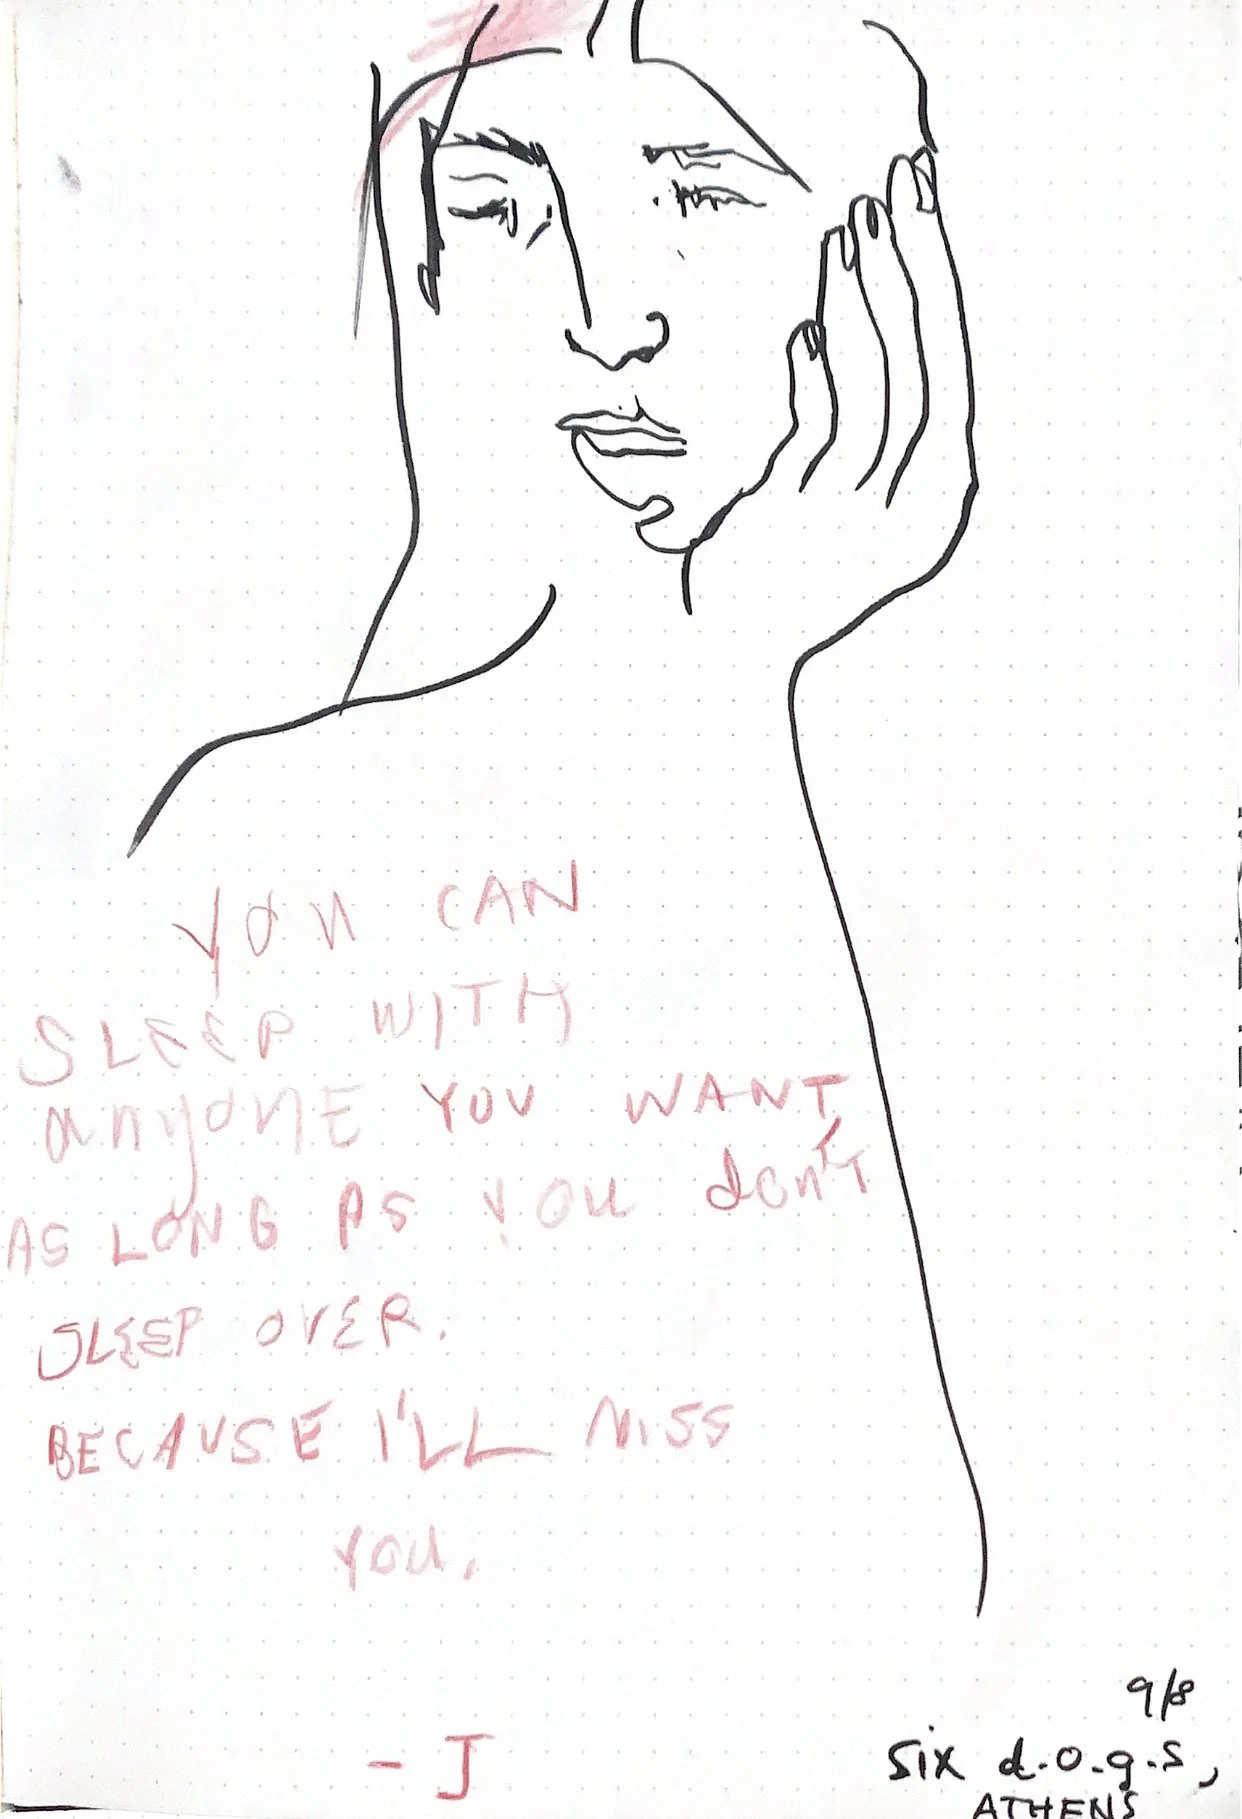 YOU CAN
SLEEP WITH
anyonE YOU WANT,
AS LONG AS YOU don't
SLEEP OVER.
BECAUSE I'LL MISS
YOU.
- J
9/8
six d.o.g.s,
ATHENS